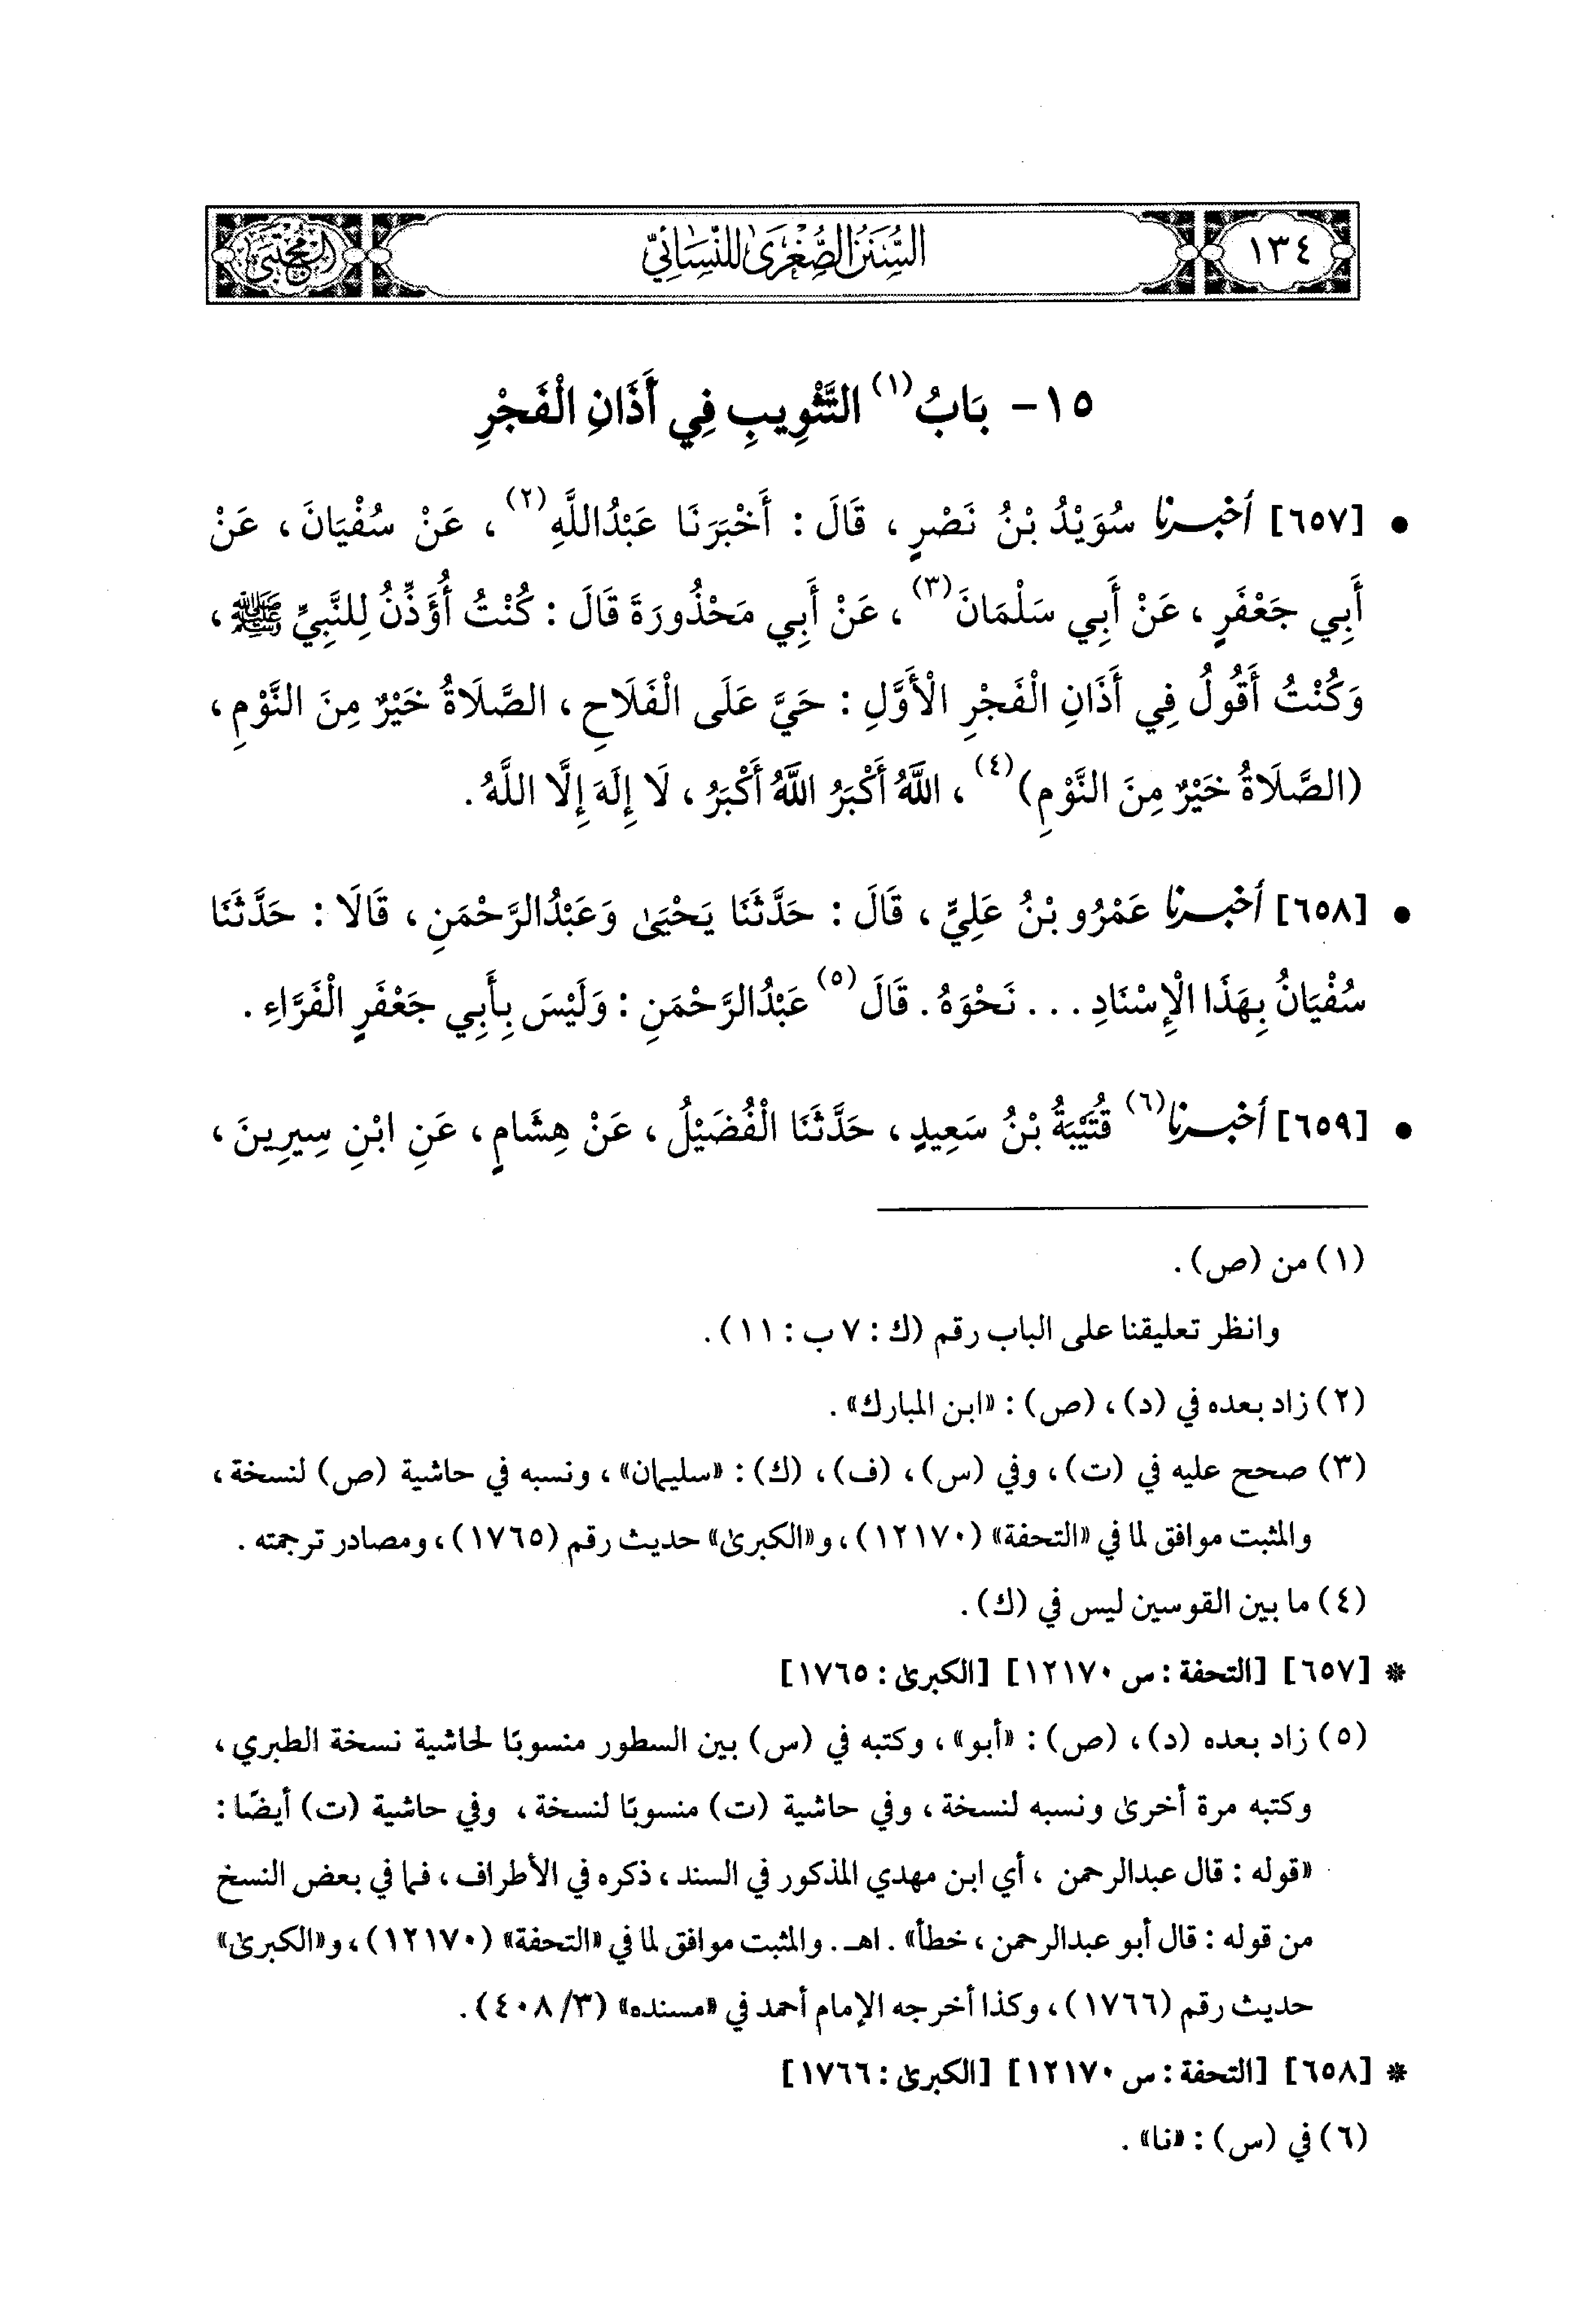 ١٣٤
السُّنَنُ الصُّغْرَىٰ لِلنَّسَائِيِّ
المجتبى
١٥- بَابُ (١) التَّثْوِيبِ فِي أَذَانِ الْفَجْرِ
• [٦٥٧] أخبرنا سُوَيْدُ بْنُ نَصْرٍ ، قَالَ : أَخْبَرَنَا عَبْدُاللَّهِ (٢) ، عَنْ سُفْيَانَ ، عَنْ
أَبِي جَعْفَرٍ ، عَنْ أَبِي سَلْمَانَ (٣) ، عَنْ أَبِي مَحْذُورَةَ قَالَ : كُنْتُ أُؤَذِّنُ لِلنَّبِيِّ ﷺ ،
وَكُنْتُ أَقُولُ فِي أَذَانِ الْفَجْرِ الْأَوَّلِ : حَيَّ عَلَى الْفَلَاحِ ، الصَّلَاةُ خَيْرٌ مِنَ النَّوْمِ ،
(الصَّلَاةُ خَيْرٌ مِنَ النَّوْمِ) (٤) ، اللَّهُ أَكْبَرُ اللَّهُ أَكْبَرُ ، لَا إِلَهَ إِلَّا اللَّهُ .
• [٦٥٨] أخبرنا عَمْرُو بْنُ عَلِيٍّ ، قَالَ : حَدَّثَنَا يَحْيَىٰ وَعَبْدُالرَّحْمَنِ ، قَالَا : حَدَّثَنَا
سُفْيَانُ بِهَذَا الْإِسْنَادِ . . . نَحْوَهُ . قَالَ (٥) عَبْدُالرَّحْمَنِ : وَلَيْسَ بِأَبِي جَعْفَرٍ الْفَرَّاءِ .
• [٦٥٩] أخبرنا (٦) قُتَيْبَةُ بْنُ سَعِيدٍ ، حَدَّثَنَا الْفُضَيْلُ ، عَنْ هِشَامٍ ، عَنِ ابْنِ سِيرِينَ ،
(١) من (ص) .
وانظر تعليقنا على الباب رقم (ك : ٧ ب : ١١) .
(٢) زاد بعده في (د) ، (ص) : «ابن المبارك» .
(٣) صحح عليه في (ت) ، وفي (س) ، (ف) ، (ك) : «سليمان» ، ونسبه في حاشية (ص) لنسخة ،
والمثبت موافق لما في «التحفة» (١٢١٧٠) ، و«الكبرىٰ» حديث رقم (١٧٦٥) ، ومصادر ترجمته .
(٤) ما بين القوسين ليس في (ك) .
* [٦٥٧] [التحفة : س ١٢١٧٠] [الكبرىٰ : ١٧٦٥]
(٥) زاد بعده (د) ، (ص) : «أبو» ، وكتبه في (س) بين السطور منسوبًا لحاشية نسخة الطبري ،
وكتبه مرة أخرىٰ ونسبه لنسخة ، وفي حاشية (ت) منسوبًا لنسخة ، وفي حاشية (ت) أيضًا :
«قوله : قال عبدالرحمن ، أي ابن مهدي المذكور في السند ، ذكره في الأطراف ، فما في بعض النسخ
من قوله : قال أبو عبدالرحمن ، خطأ» . اهـ . والمثبت موافق لما في «التحفة» (١٢١٧٠) ، و«الكبرىٰ»
حديث رقم (١٧٦٦) ، وكذا أخرجه الإمام أحمد في «مسنده» (٣/ ٤٠٨) .
* [٦٥٨] [التحفة : س ١٢١٧٠] [الكبرىٰ : ١٧٦٦]
(٦) في (س) : «نا» .